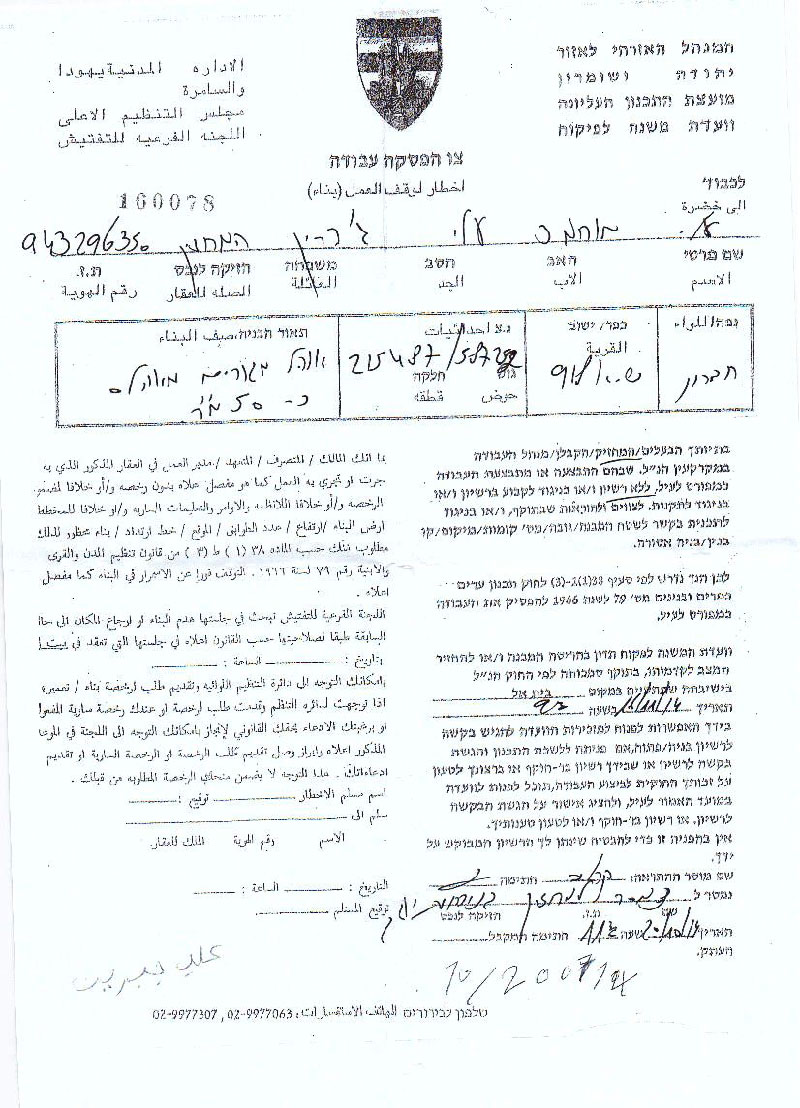 המנהל האזרחי לאזור
יהודה ושומרון
מועצת התכנון העליונה
וועדת משנה לפיקוח
الاداره المدنية يهودا
والسامرة
مجلس التنظيم الاعلى
اللجنه الفرعيه للتفتيش
צו הפסקה עבודה
اخطار ليقف العمل (بناء)
160078
לכבוד
الى حضرة
מוחמד עלי ג'ברין המחזיק 943296350
שם פרטי האב הסב משפחה הזיקה לנכס ת.ז.
الاسم الاب الجد العائلة الصله للعقار رقم الهوية
נפה/اللواء כפר/ישוב القرية נ.צ احداثيات תאור הבניה/صيف البناء
חברון
גוש חלקה
حوض قطعه
אוהל מגורים
כ- 50 מ"ר
בהיותך הבעלים/המחזיק/הקבלן/מנהל העבודה
במקרקעין הנ"ל, שבהם התבצעה או מתבצעת העבודה
כמפורט לעיל, ללא רשיון ו/או בניגוד לקבוע ברשיון ו/או
בניגוד לתקנות, לצווים ולהוראות שבתוקף, ו/או בניגוד
לתכנית בקשר לשטח המבנה/גובה/מס' קומות/מיקום/קו
בנין/בניה אסורה.
לכן הנך נדרש לפי סעיף 38(1)(ג-3) לחוק תכנון ערים
כפרים ובנינים מס' 79 לשנת 1966 להפסיק את העבודה
כמפורט לעיל.
וועדת המשנה לפקוח תדון בהריסת המבנה ו/או להחזיר
המצב לקדמותו, בתוקף סמכותה לפי החוק הנ"ל
בישיבתה שתתקיים במקום בית אל
תאריך שעה
בידך האפשרות לפנות למזכירות הוועדה להגיש בקשה
לרשיון בניה/פתוח, אם פנית ללשכת התכנון והגשת
בקשה לרשיון או שבידך רשיון בר-תוקף או ברצונך לטעון
על זכותך החוקית לביצוע העבודה, תוכל לפנות לוועדה
במועד האמור לעיל, ולהציג אישור על הגשת הבקשה
לרשיון, או רשיון בר-תוקף ו/או לטעון טענותיך.
אין בהפניה זו כדי להבטיח שינתן לך הרשיון המבוקש על
ידך.
שם מוסר ההתראה: חתימה
נמסר ל
שם ת.ז. הזיקה לנכס
תאריך שעה חתימת המקבל
העתק:
بما انك المالك / المتصرف / المتعهد / مدير العمل في العقار المذكور الذي به
جرت او تجري به العمل كما هو مفصل علاه بدون رخصه و/أو خلافا لمضمو
الرخصه و/أو خلافا للانظمه والاوامر والتعليمات الساريه و/او خلافا للمخطط
ارض البناء /ارتفاع / عدد الطوابق / الموقع / خط ارتداد / بناء محظور لذلك
مطلوب منك حسب الماده ٣٨ (١) ط (٣) من قانون تنظيم المدن والقرى
والابنية رقم ٧٩ لسنة ١٩٦٦. التوقف فورا عن الاستمرار في البناء كما مفصل
اعلاه .
اللجنة الفرعية للتفتيش تبحث في جلستها هدم البناء او ارجاع المكان الى حا
السابقة طبقا لصلاحيتها حسب القانون اعلاه في جلستها التي تعقد في
بتاريخ : الساعة :
بامكانك التوجه الى دائرة التنظيم اللوائيه وتقديم طلب لرخصة بناء / تعمير،
اذا توجهت لدائره التنظم وقدمت طلب لرخصة او عندك رخصة سارية المفعول
او برغبتك الادعاء بحقك القانوني لإنجاز بامكانك التوجه الى اللجنة في الموعد
المذكور اعلاه وإبراز وصل تقديم طلب الرخصة او الرخصة السارية او تقديم
ادعاءاتك . هذا التوجه لا يضمن منحك الرخصة المطلوبه من قبلك .
اسم مسلم الاخطار توقيع :
سلم الى
الاسم رقم الهوية المالك للعقار
التاريخ : الساعة :
توقيع المستلم
10/2007/14
טלפון לבירורים الهاتف الاستفسارات : 02-9977063 , 02-9977307